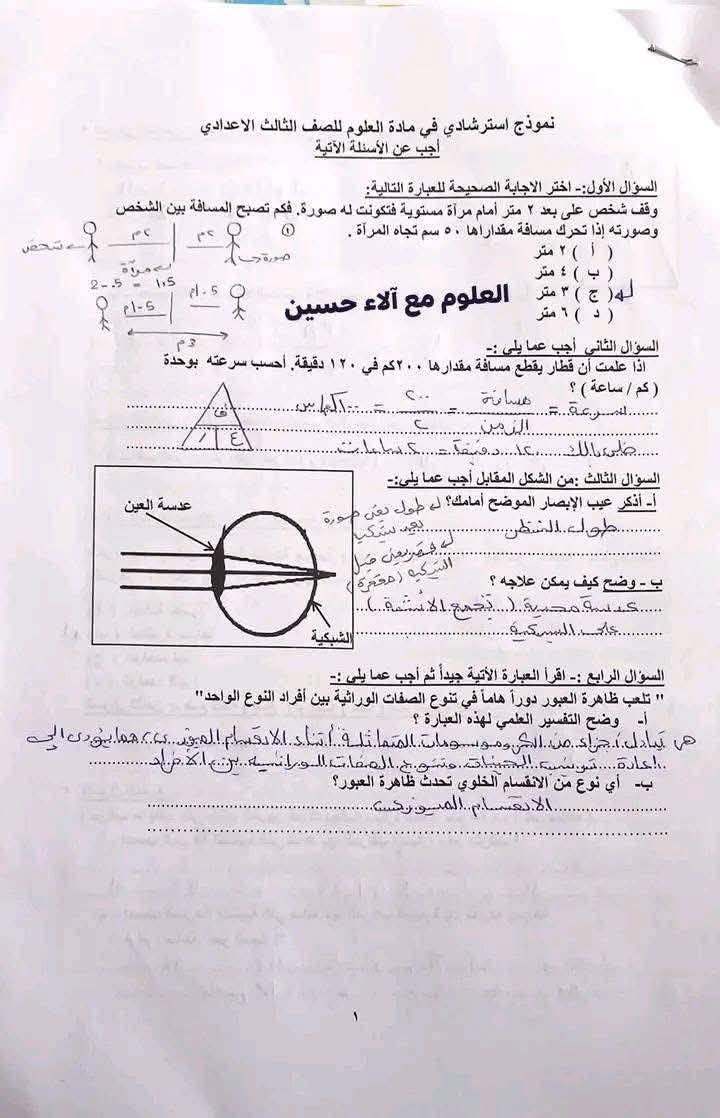 نموذج استرشادي في مادة العلوم للصف الثالث الاعدادي
أجب عن الأسئلة الآتية
السؤال الأول:- اختر الاجابة الصحيحة للعبارة التالية:
وقف شخص على بعد ٢ متر أمام مرآة مستوية فتكونت له صورة. فكم تصبح المسافة بين الشخص
وصورته إذا تحرك مسافة مقدارها ٥٠ سم تجاه المرآة .
شخص ٢م ٢م صورة
مرآة
( أ ) ٢ متر
( ب ) ٤ متر
( ج ) ٣ متر
( د ) ٦ متر
2-0.5 = 1.5
٣م
العلوم مع آلاء حسين
السؤال الثاني أجب عما يلي :-
اذا علمت أن قطار يقطع مسافة مقدارها ٢٠٠كم في ١٢٠ دقيقة. أحسب سرعته بوحدة
( كم / ساعة ) ؟
سرعة = مسافة / الزمن = ٢٠٠ / ٢ = ١٠٠كم/س
ف
ع
خلي بالك ١٢٠ دقيقة = ٢ ساعات
السؤال الثالث :من الشكل المقابل أجب عما يلي:-
أ- أذكر عيب الإبصار الموضح أمامك؟
طول النظر
طول يعني صورة
بعد شبكية
قصر يعني قبل
الشبكية (مقعرة)
ب - وضح كيف يمكن علاجه ؟
عدسة محدبة ( تجمع الأشعة )
على الشبكية
عدسة العين
الشبكية
السؤال الرابع :- اقرأ العبارة الأتية جيداً ثم أجب عما يلي :-
" تلعب ظاهرة العبور دوراً هاماً في تنوع الصفات الوراثية بين أفراد النوع الواحد"
أ- وضح التفسير العلمي لهذه العبارة ؟
هي تبادل أجزاء من الكروموسومات المتماثلة أثناء الانقسام الميوزي مما يؤدي إلى
إعادة ترتيب الجينات وتنوع الصفات الوراثية بين الأفراد
ب- أي نوع من الانقسام الخلوي تحدث ظاهرة العبور؟
الانقسام الميوزي
١